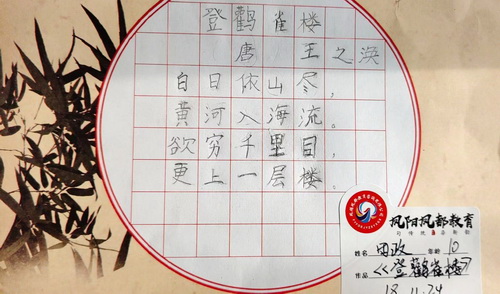 登鹳雀楼
唐 王之涣
白日依山尽，
黄河入海流。
欲穷千里目，
更上一层楼。
凤阳凤都教育
姓名 田政 年龄 10
作品 <<登鹳雀楼>>
18.11.24